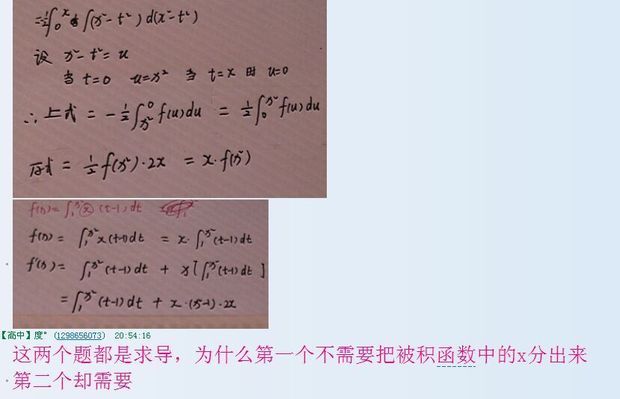 = -½∫₀ˣ f(x²-t²) d(x²-t²)
设 x²-t² = u
当 t=0 u=x² 当 t=x 时 u=0
∴ 上式 = -½∫ₓ²⁰ f(u)du = ½∫₀ˣ² f(u)du
原式 = ½f(x²)·2x = x·f(x²)
f(x)= ∫₁ˣ² x (t-1) dt
f(x) = ∫₁ˣ² x(t-1)dt = x·∫₁ˣ² (t-1)dt
f'(x) = ∫₁ˣ² (t-1)dt + x[∫₁ˣ² (t-1)dt]
= ∫₁ˣ² (t-1)dt + x·(x²-1)·2x
【高中】度° (1298656073) 20:54:16
这两个题都是求导，为什么第一个不需要把被积函数中的x分出来
第二个却需要